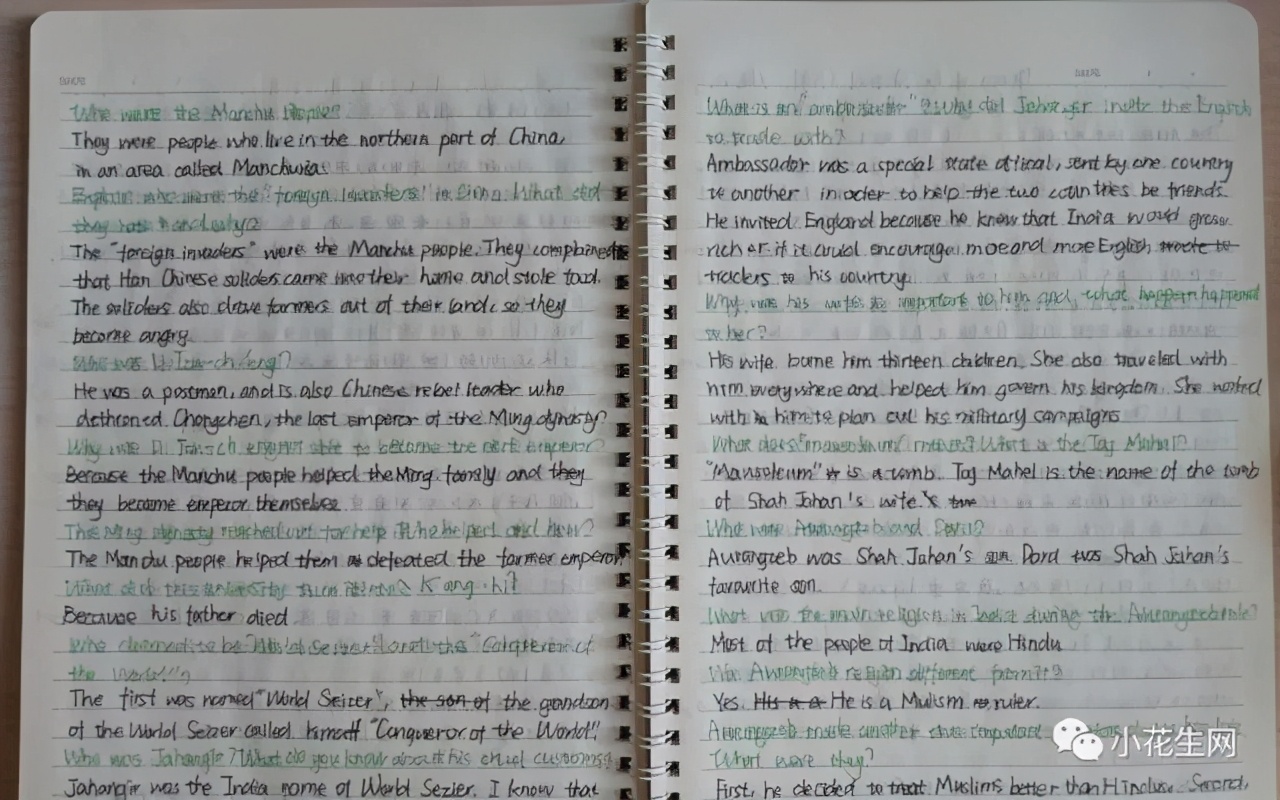 Who were the Manchu People?
They were people who live in the northern part of China,
in an area called Manchuria.
Explain who were the "foreign invaders" in China. What did
they and why?
The "foreign invaders" were the Manchu people. They complained
that Han Chinese soliders came into their home and stole food.
The soliders also drove farmers out of their land, so they
become angry.
Who was Li Tzu-ch'eng?
He was a postman, and is also Chinese rebel leader who
dethroned Chongchen, the last emperor of the Ming dynasty?
Why was Li able to become the next emperor?
Because the Manchu people helped the Ming family and they
they become emperor themselves.
The Ming dynasty reached out for help. helped and how?
The Manchu people helped them defeated the former emperor
K'ang-hi?
Because his father died
Who claimed to be "World Seizer" and the "Conqueror of
the World"?
The first was named "World Seizer", the son of the grandson
of the World Seizer called himself "Conqueror of the World".
Who was Jahangir? What do you know about his cruel customs?
Jahangir was the India name of World Sezier. I know that
What is an "ambassador"? Why did Jehangir invite the English
to trade with?
Ambassador was a special state offical, sent by one country
to another in order to help the two countries be friends.
He invited England because he knew that India would grow
richer if it could encourage moe and moe English
traders to his country.
Why was his wife so important to him and, what happen happened
to her?
His wife borne him thirteen children. She also traveled with
him everywhere and helped him govern his kingdom. She worked
with him to plan out his military campaigns
What does "mausoleum" mean? What is the Taj Mahal?
"Mausoleum" is a tomb. Taj Mahel is the name of the tomb
of Shah Jahan's wife.
Who were Aurangzeb and Dara?
Aurangzeb was Shah Jahan's son. Dara was Shah Jahan's
favourite son.
What was the main religion in India during the Aurangzeb rule?
Most of the people of India were Hindu
Was Aurangzeb's religion different from it?
Yes. He is a Mulism ruler.
Aurangzeb made another three important
What were they?
First, he decided to treat Muslims better than Hindus. Second,
小花生网